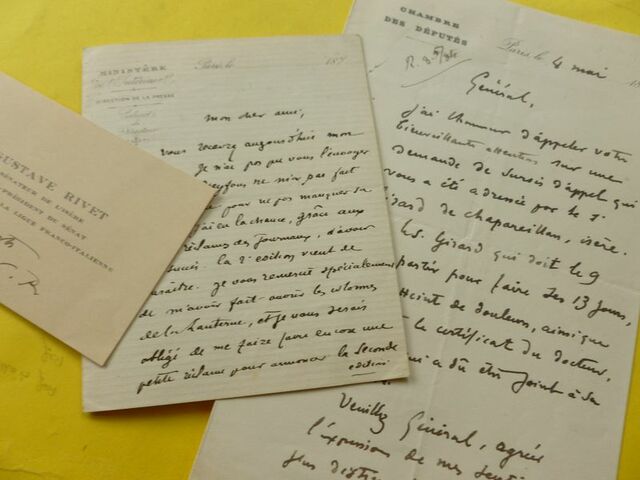 USTAVE RIVET
SÉNATEUR DE L'ISÈRE
PRÉSIDENT DU SÉNAT
LA LIGUE FRANCO-ITALIENNE
MINISTÈRE
DIRECTION DE LA PRESSE
Paris, le 187
Mon cher ami,
vous recevez aujourd'hui mon
Je n'ai pas pu vous l'envoyer
ne m'en pas fait
pour ne pas manquer sa
j'ai eu la chance, grâce aux
réclames des journaux, d'avoir
succès. la 2e edition vient de
paraître. Je vous remercie spécialement
de m'avoir fait ouvrir les colonnes
de la lanterne, et je vous serais
obligé de me faire faire encore une
petite réclame pour annoncer la seconde
edition
CHAMBRE
DES DÉPUTÉS
Paris, le 4 mai
Général,
j'ai l'honneur d'appeler votre
bienveillante attention sur une
demande de sursis d'appel qui
vous a été adressée par le Sr
Girard de Chapareillan, isère.
Le S. Girard qui doit le 9
partir pour faire ses 13 jours,
atteint de douleurs, ainsi que
le certificat du docteur,
qui a dû être joint à sa
Veuillez Général, agréer
l'expression de mes senti
plus disti